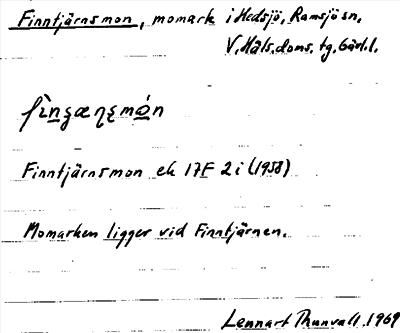 Finntjärnsmon, momark i Hedsjö, Ramsjö sn,
V. Häls. doms. tg. Gävl. l.
Finntjärnsmon ek 17F 2 i (1958)
Momarken ligger vid Finntjärnen.
Lennart Thunvall 1969